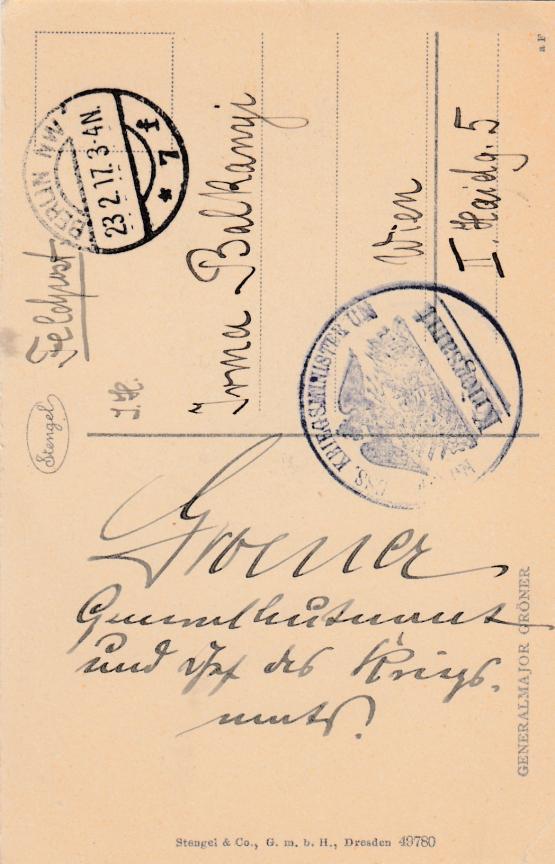 a F
BERLIN NW
23 2 17. 3-4N.
* 7 f
Feldpost
J. H.
Irma Balkanyi
Wien
II. Haidg. 5
Stengel
KRIEGSMINISTERIUM
Kriegsamt
Groener
Generalleutnant
und Chef des Kriegs-
amts.
GENERALMAJOR GRÖNER
Stengel & Co., G. m. b. H., Dresden 49780